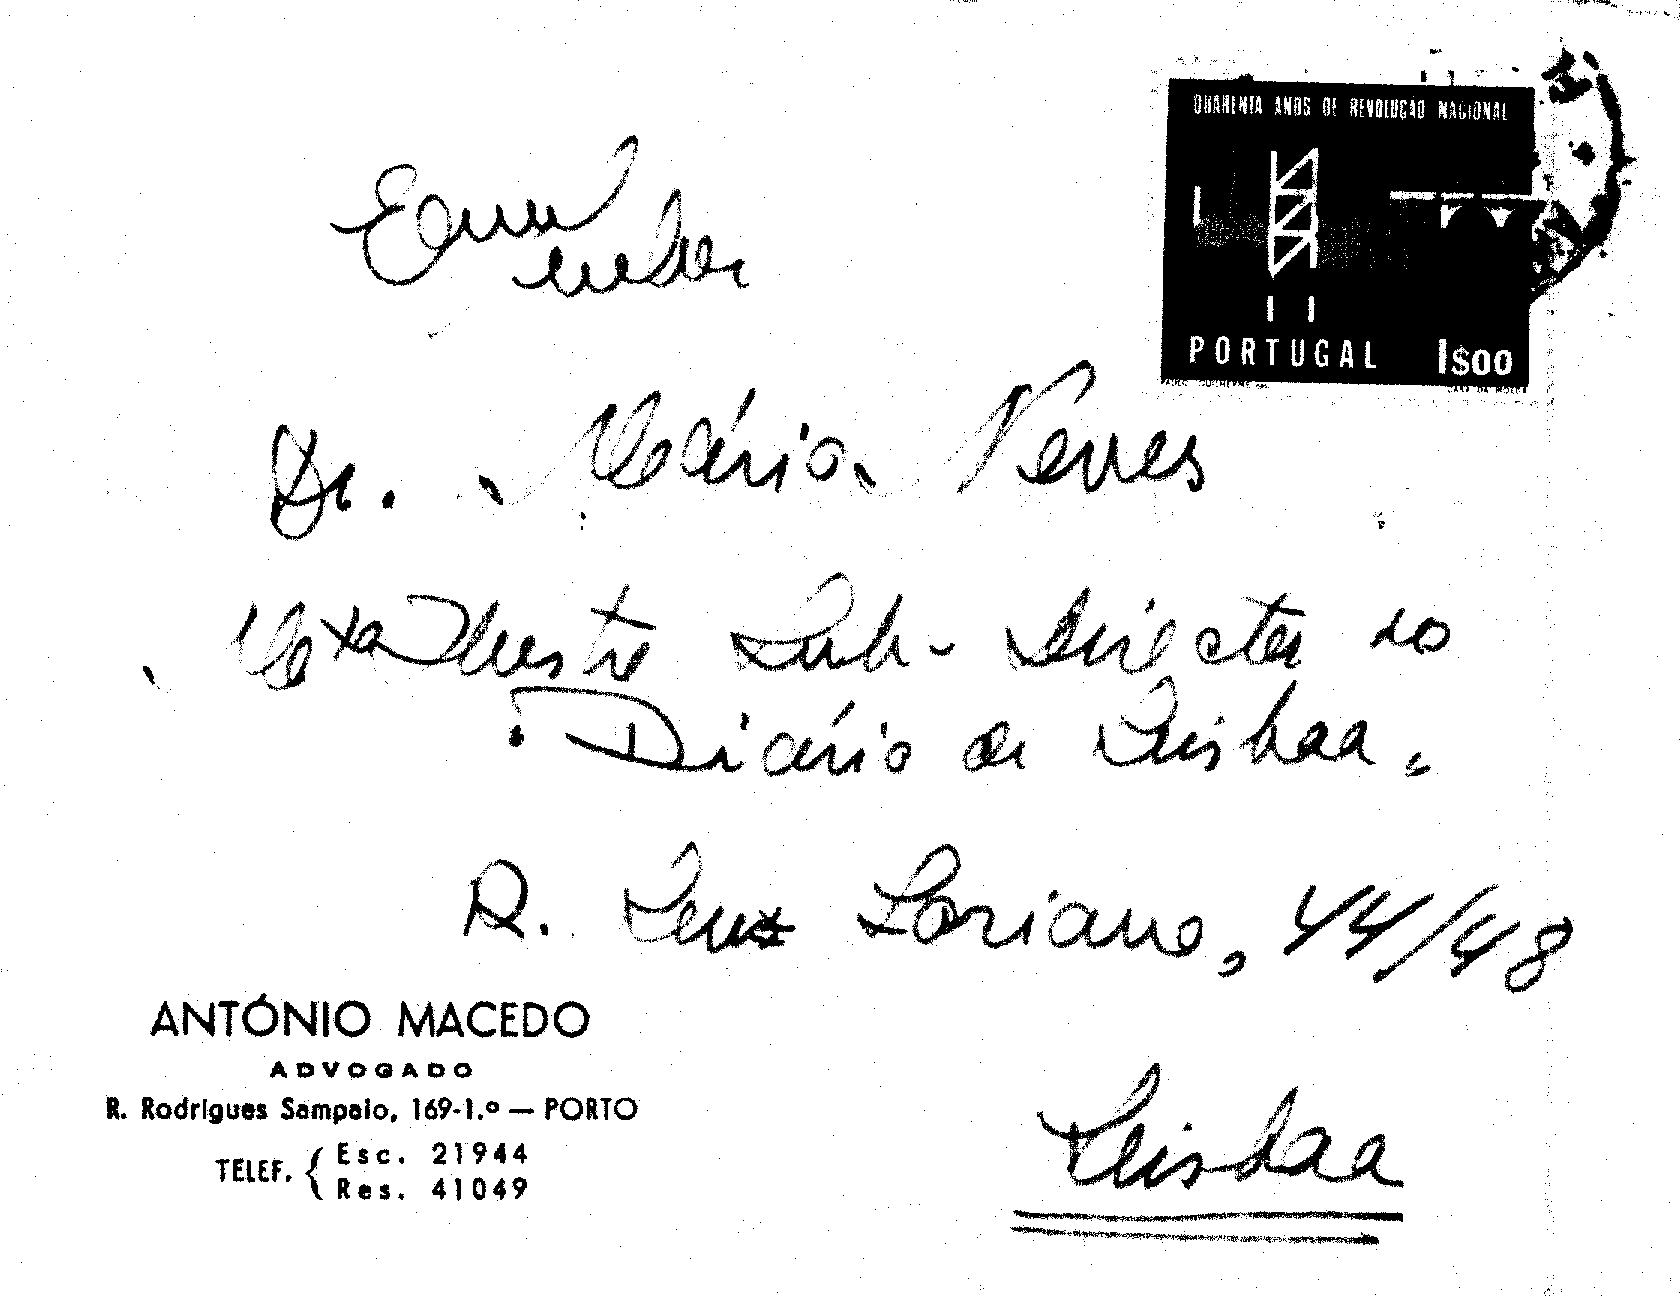 QUARENTA ANOS DE REVOLUÇÃO NACIONAL
PORTUGAL 1$00
Dr. Mário Neves
Ilustre Sub-Director do
Diário de Lisboa.
R. Luz Soriano, 44/48
ANTÓNIO MACEDO
ADVOGADO
R. Rodrigues Sampaio, 169-1.º — PORTO
TELEF. { Esc. 21944
Res. 41049
Lisboa